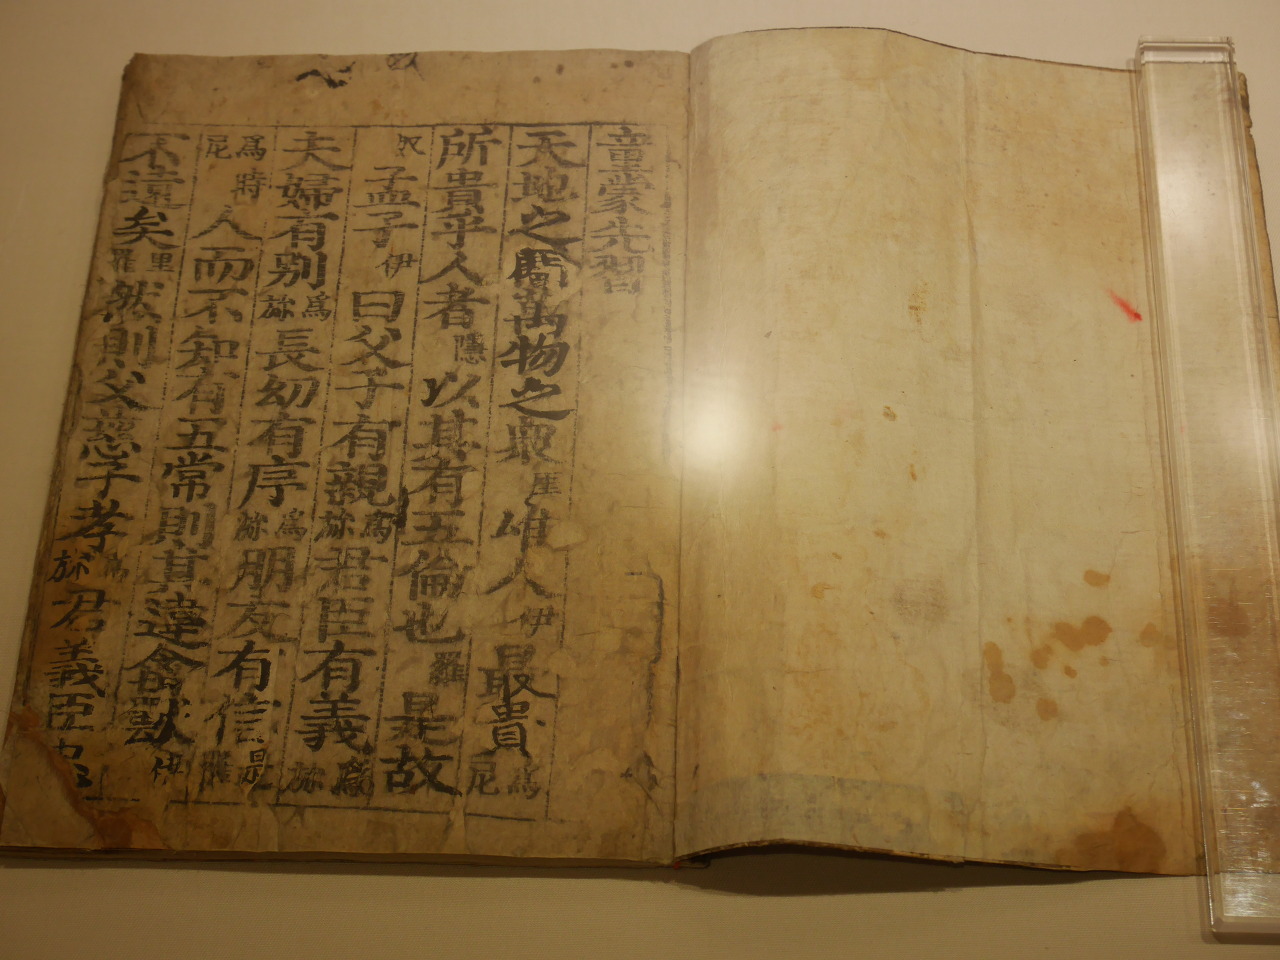 童蒙先習
天地之間萬物之衆厓唯人伊最貴爲尼
所貴乎人者隱以其有五倫也羅是故
孟子伊曰父子有親爲旀君臣有義爲旀
夫婦有別爲旀長幼有序爲旀朋友有信是羅
爲時尼人而不知有五常則其違禽獸伊
不遠矣里羅然則父慈子孝爲旀君義臣忠